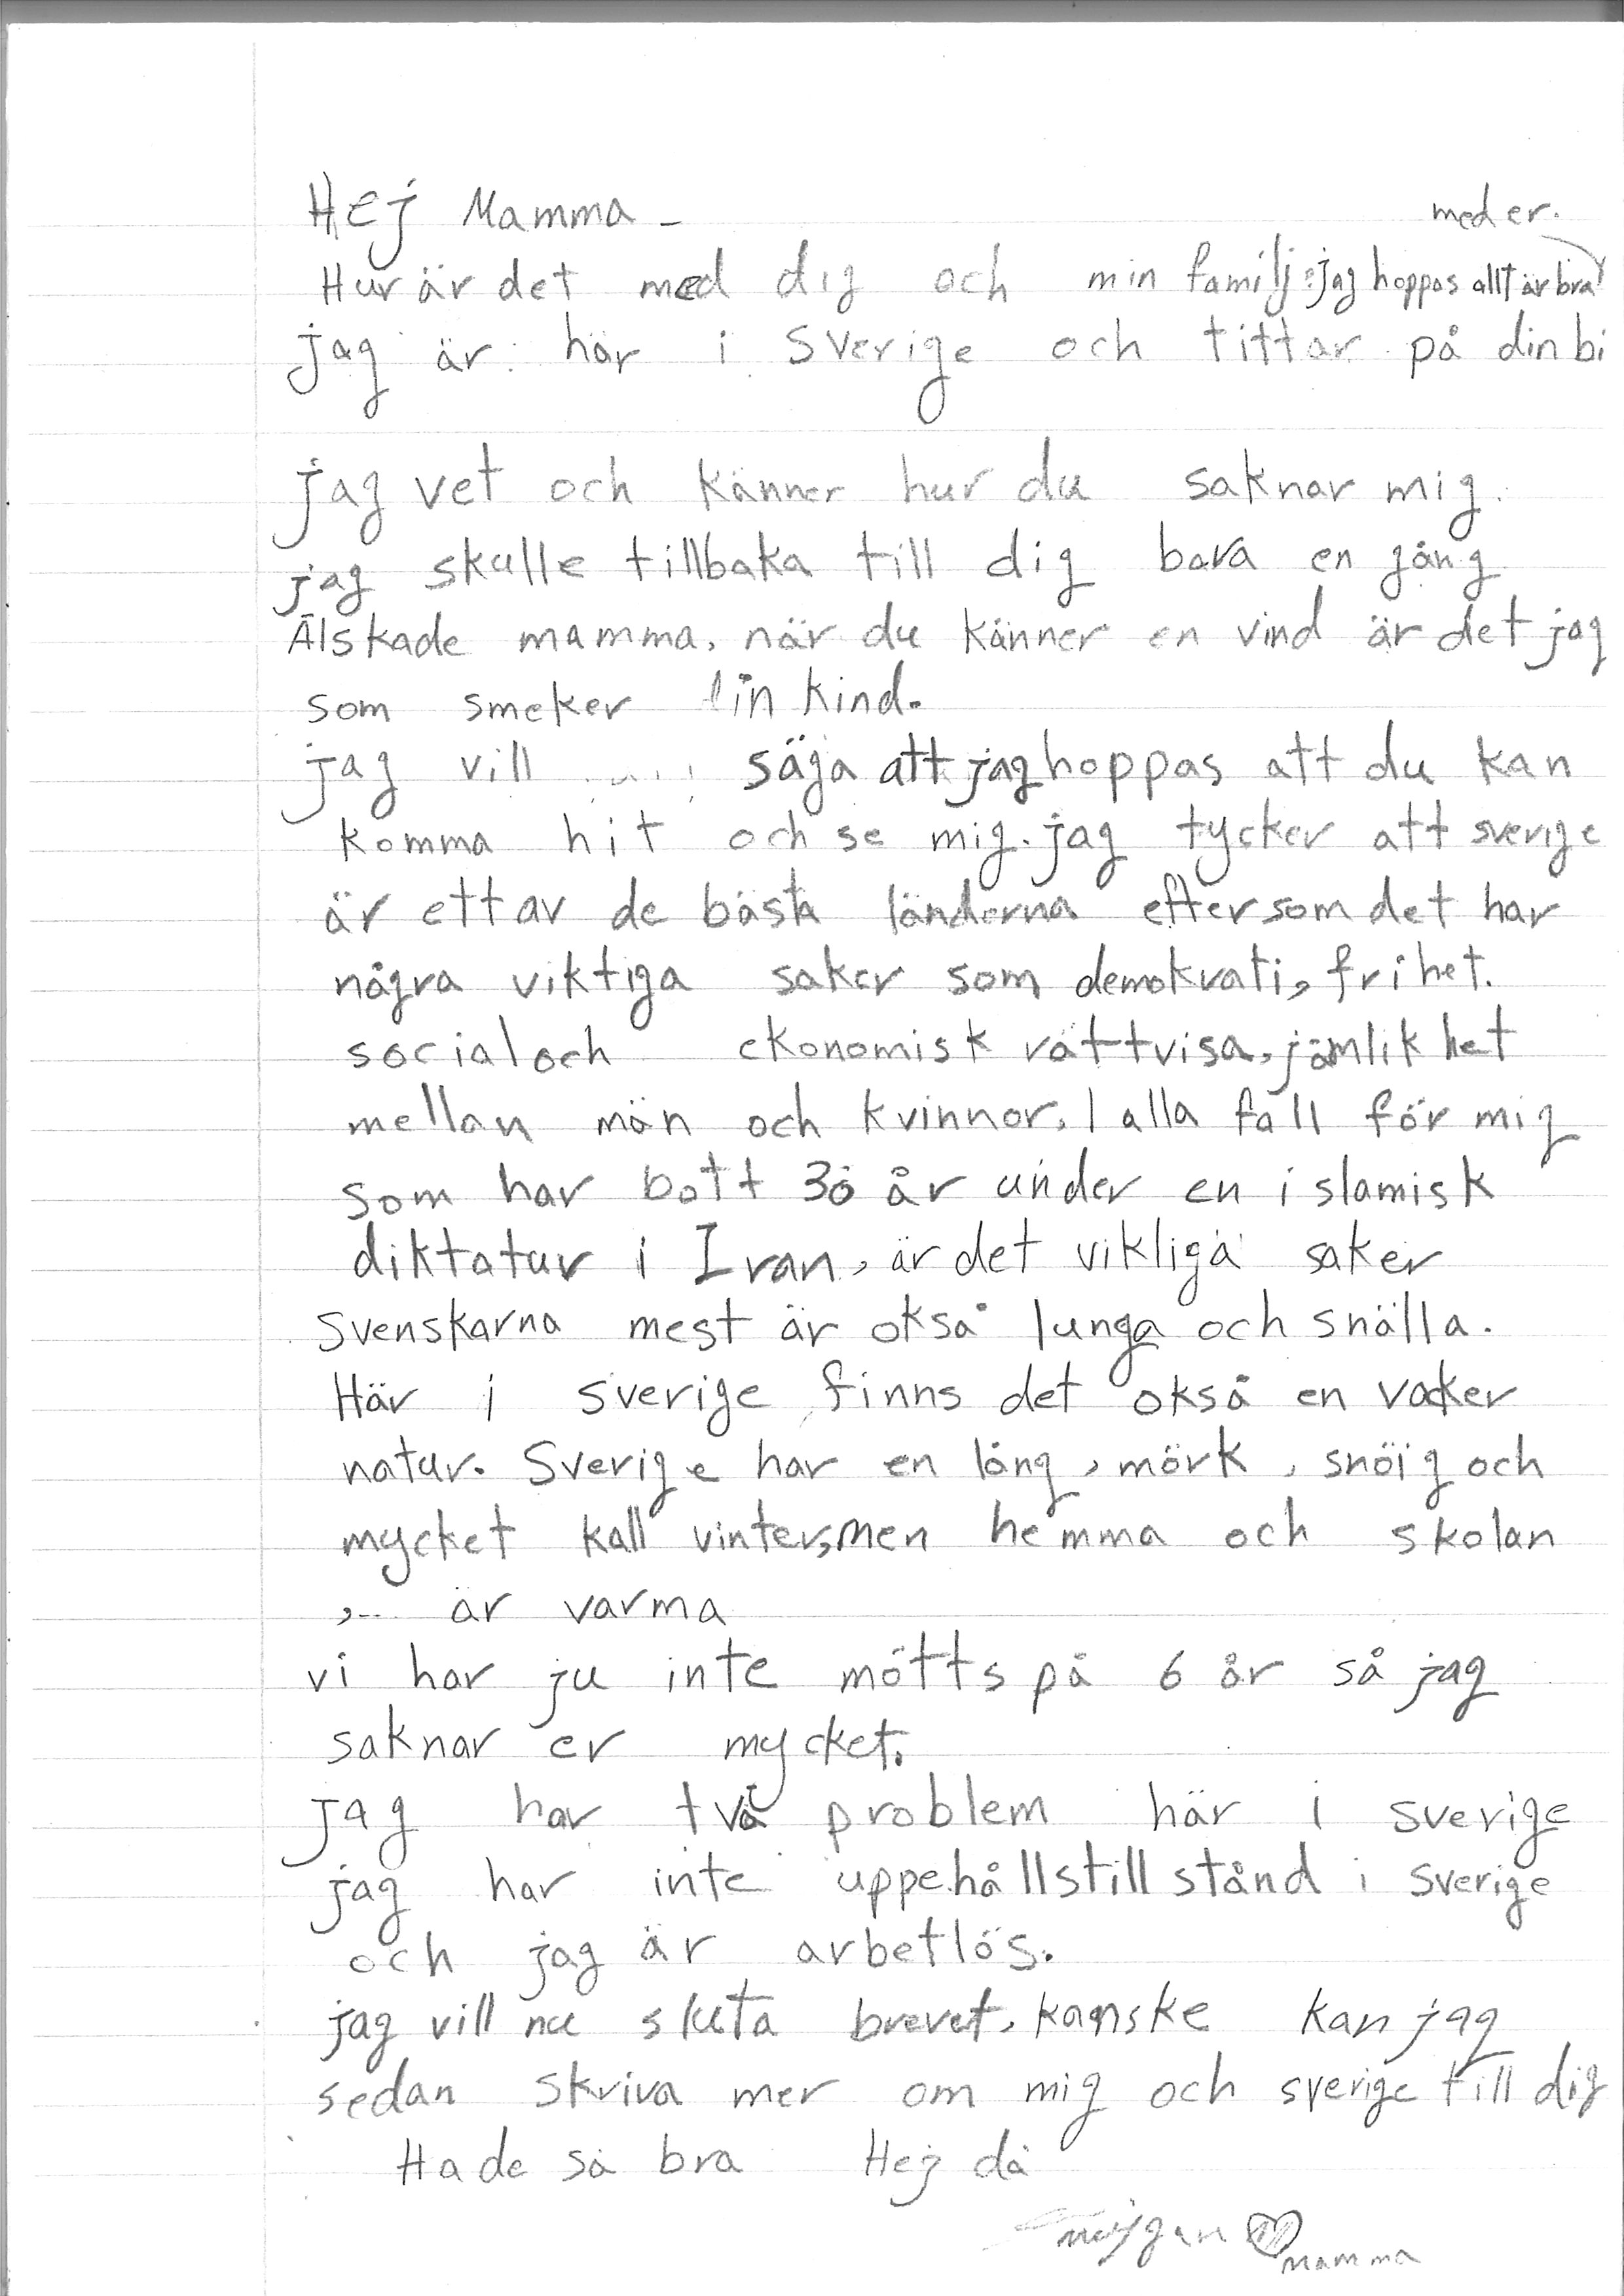 Hej Mamma -
Hur är det med dig och min familj: jag hoppas allt är bra med er.
jag är här i Sverige och tittar på din bi
jag vet och känner hur du saknar mig.
jag skulle tillbaka till dig bara en gång
Älskade mamma, när du känner en vind är det jag
som smeker din kind.
jag vill säga att jag hoppas att du kan
komma hit och se mig. jag tycker att sverige
är ett av de bästa länderna eftersom det har
några viktiga saker som demokrati, frihet.
social och ekonomisk rättvisa, jämlikhet
mellan män och kvinnor. I alla fall för mig
som har bott 30 år under en islamisk
diktatur i Iran, är det vikliga saker
Svenskarna mest är okså lunga och snälla.
Här i sverige finns det okså en vacker
natur. Sverige har en lång, mörk, snöig och
mycket kall vinter, men hemma och skolan
,... är varma
vi har ju inte mötts på 6 år så jag
saknar er mycket.
jag har två problem här i sverige
jag har inte uppehållstillstånd i sverige
och jag är arbetlös.
jag vill nu sluta brevet, kanske kan jag
sedan skriva mer om mig och sverige till dig
Ha de så bra Hej då
mojgan
mamma